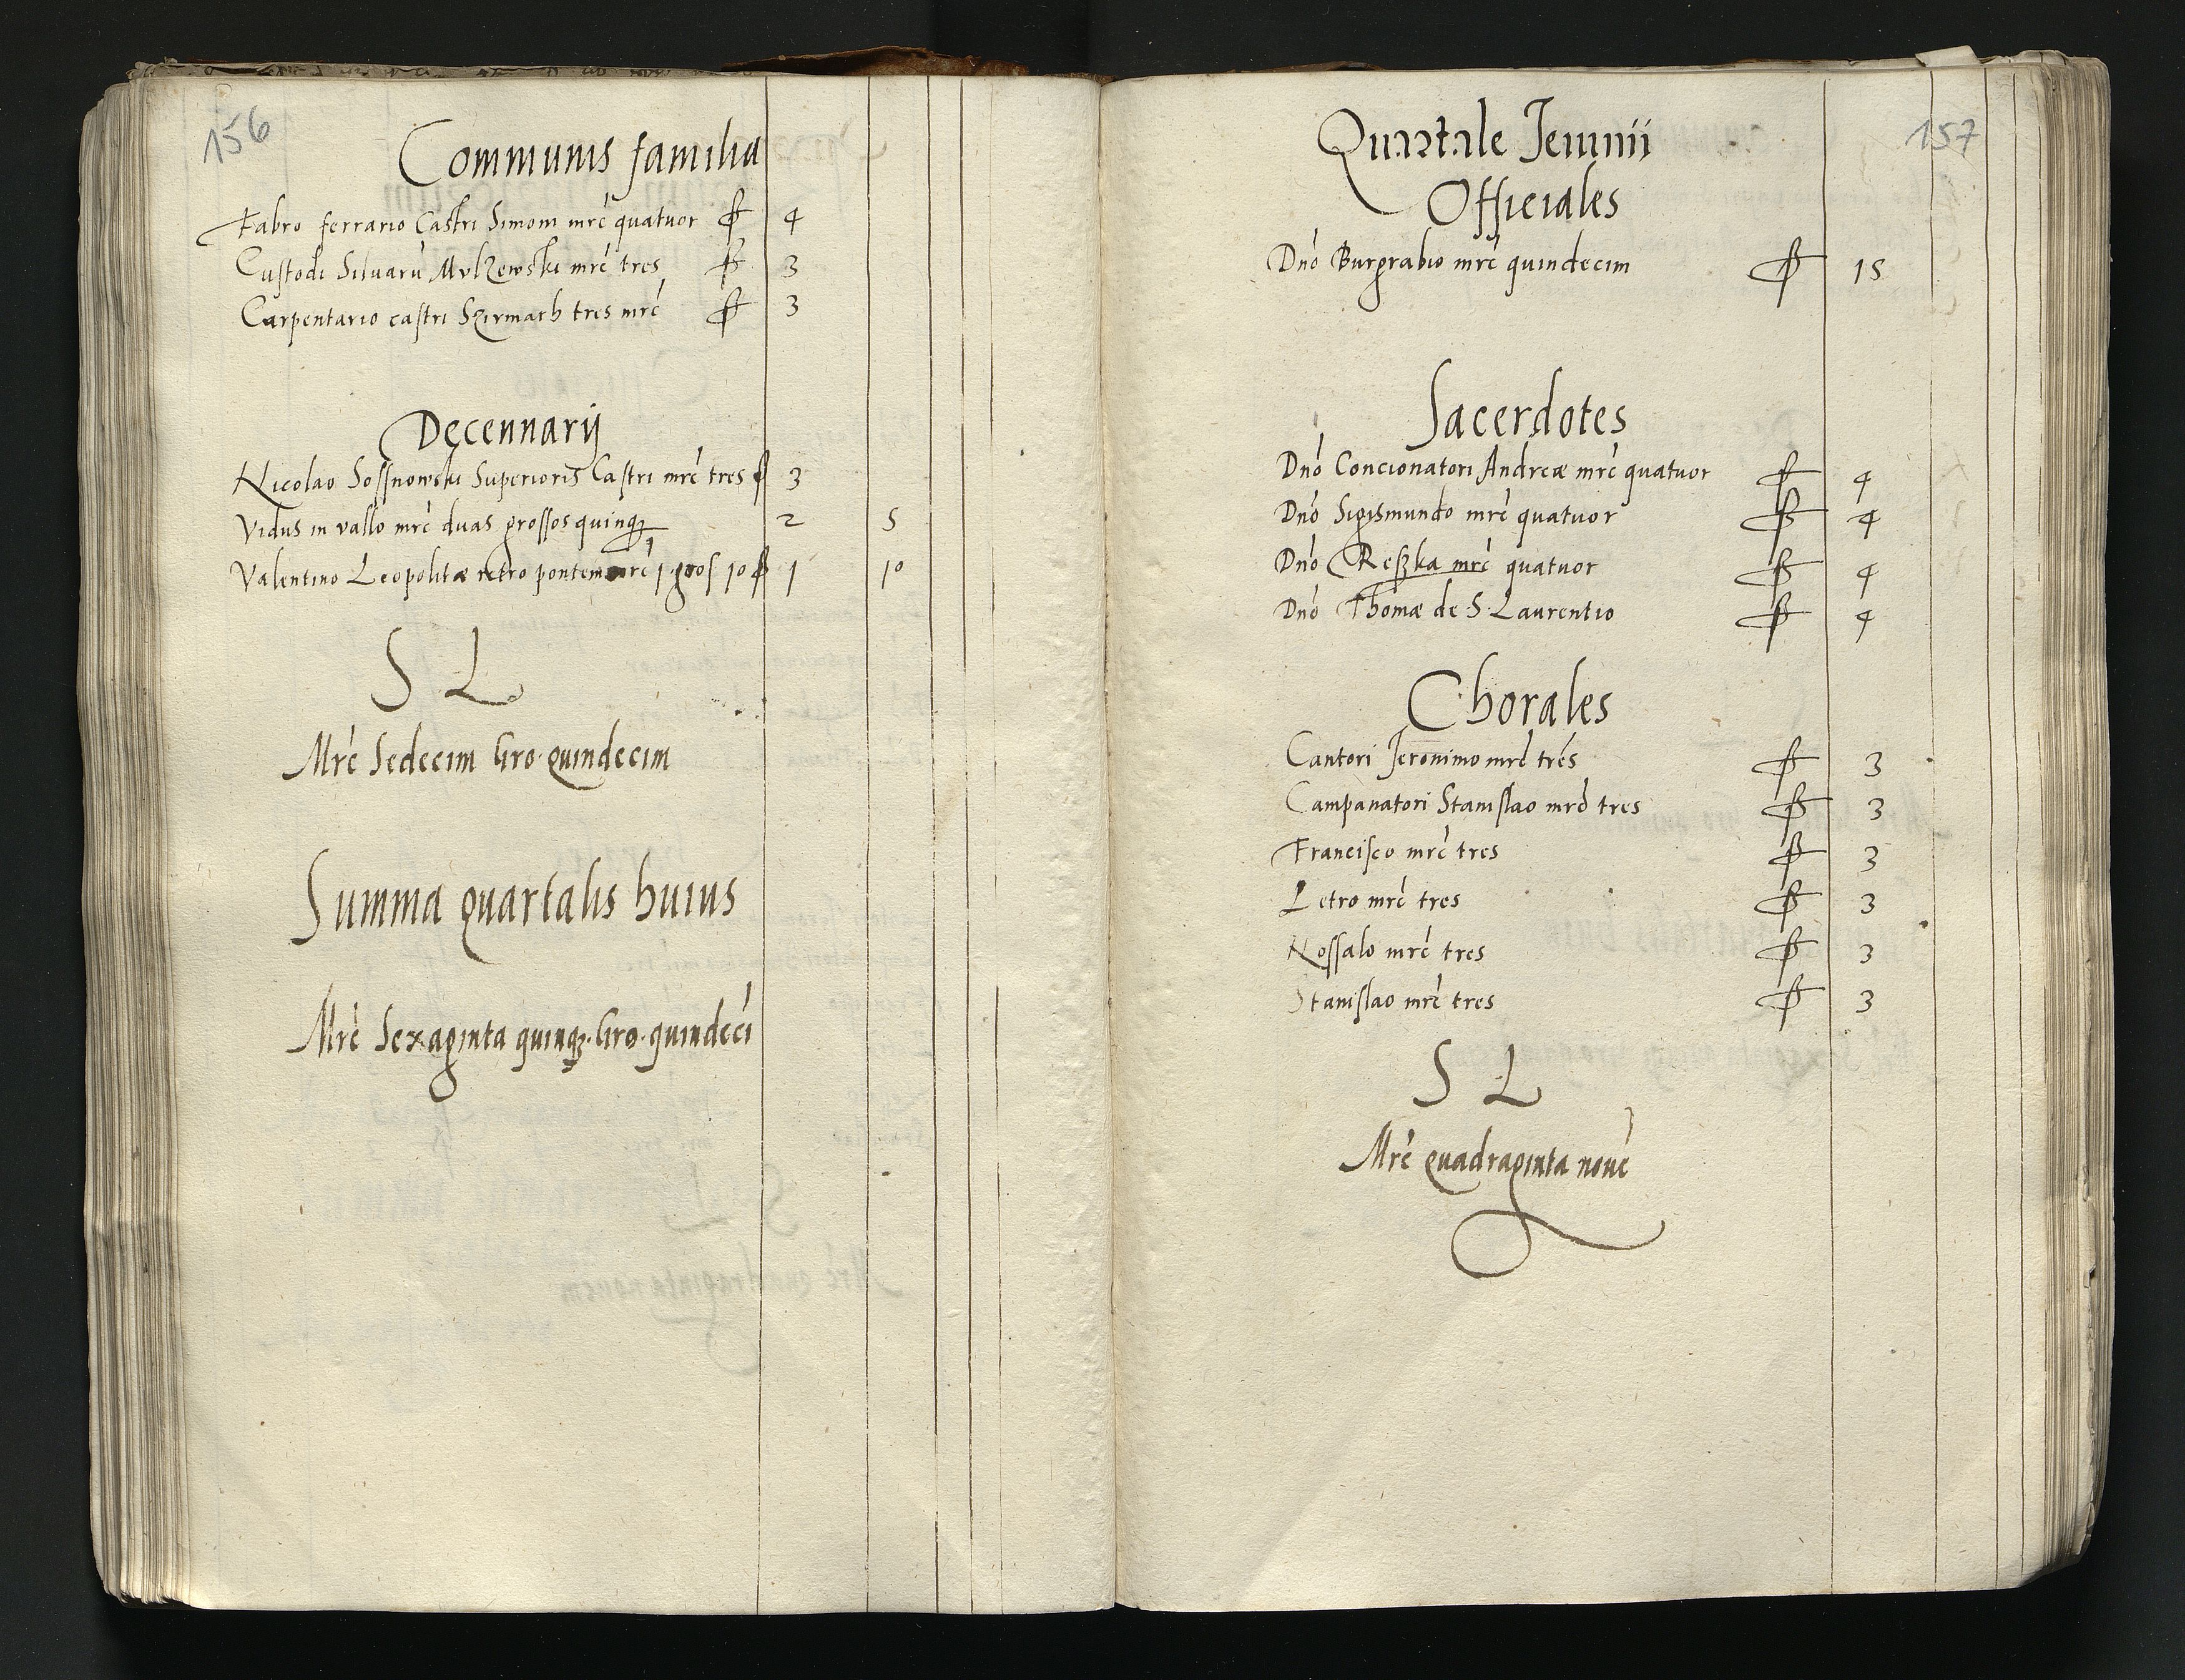 156
Communis familia
Fabro ferrario Castri Simoni mrč quatuor ꝭ 4
Custodi Siluarū mrč tres ꝭ 3
Carpentario castri tres mrč ꝭ 3
Decennarij
Nicolao Sossnowski Superioris Castri mrč tres ꝭ 3
Vidus in vallo mrč duas grossos quinqꝫ 2 5
Valentino Leopolitæ retro pontem mrč 1 gros 10 ꝭ 1 10
S L
Mrč Sedecim Gro quindecim
Summa quartalis huius
Mrč Sexaginta quinqꝫ Gro quindeci
157
Quartale Jeiunii
Officiales
Dnō Burgrabio mrč quindecim ꝭ 15
Sacerdotes
Dnō Concionatori Andreæ mrč quatuor ꝭ 4
Dnō Sigismundo mrč quatuor ꝭ 4
Dnō Reszka mrč quatuor ꝭ 4
Dnō Thomæ de S. Laurentio ꝭ 4
Chorales
Cantori Jeronimo mrč tres ꝭ 3
Campanatori Stanislao mrč tres ꝭ 3
Francisco mrč tres ꝭ 3
Letro mrč tres ꝭ 3
Nossalo mrč tres ꝭ 3
Stanislao mrč tres ꝭ 3
S L
Mrč quadraginta nouē